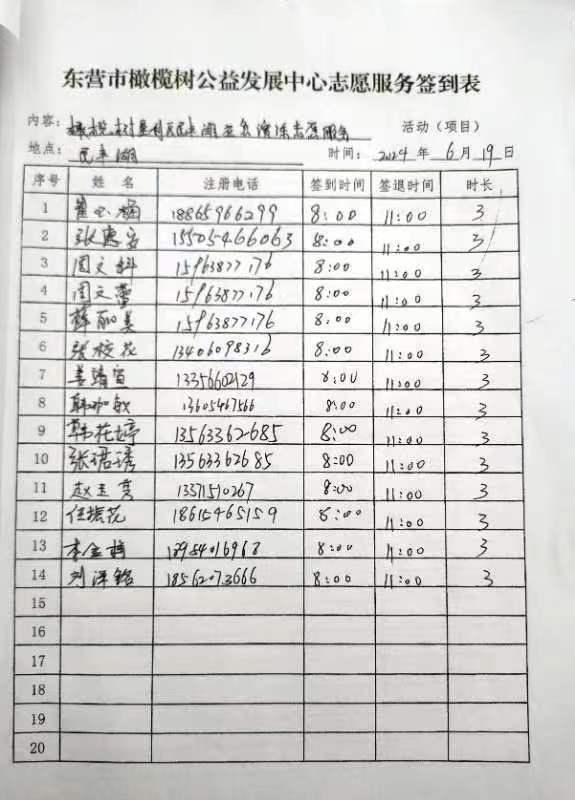 东营市橄榄树公益发展中心志愿服务签到表
内容: 橄榄树 民丰湖 清洁志愿服务 活动（项目）
地点: 民丰湖 时间: 2024 年 6 月 19 日
序号 姓 名 注册电话 签到时间 签退时间 时长
1 18865966299 8:00 11:00 3
2 张惠 15505466063 8:00 11:00 3
3 周文科 15963877176 8:00 11:00 3
4 周文蕾 15963877176 8:00 11:00 3
5 薛丽美 15963877176 8:00 11:00 3
6 张校花 13406098316 8:00 11:00 3
7 姜靖宜 13356602129 8:00 11:00 3
8 韩 敏 13605467566 8:00 11:00 3
9 韩花婷 13563362685 8:00 11:00 3
10 张珺琇 13563362685 8:00 11:00 3
11 赵 亮 13371510267 8:00 11:00 3
12 任振花 18615465159 8:00 11:00 3
13 李金 18954016968 8:00 11:00 3
14 刘泽铭 18562073666 8:00 11:00 3
15
16
17
18
19
20